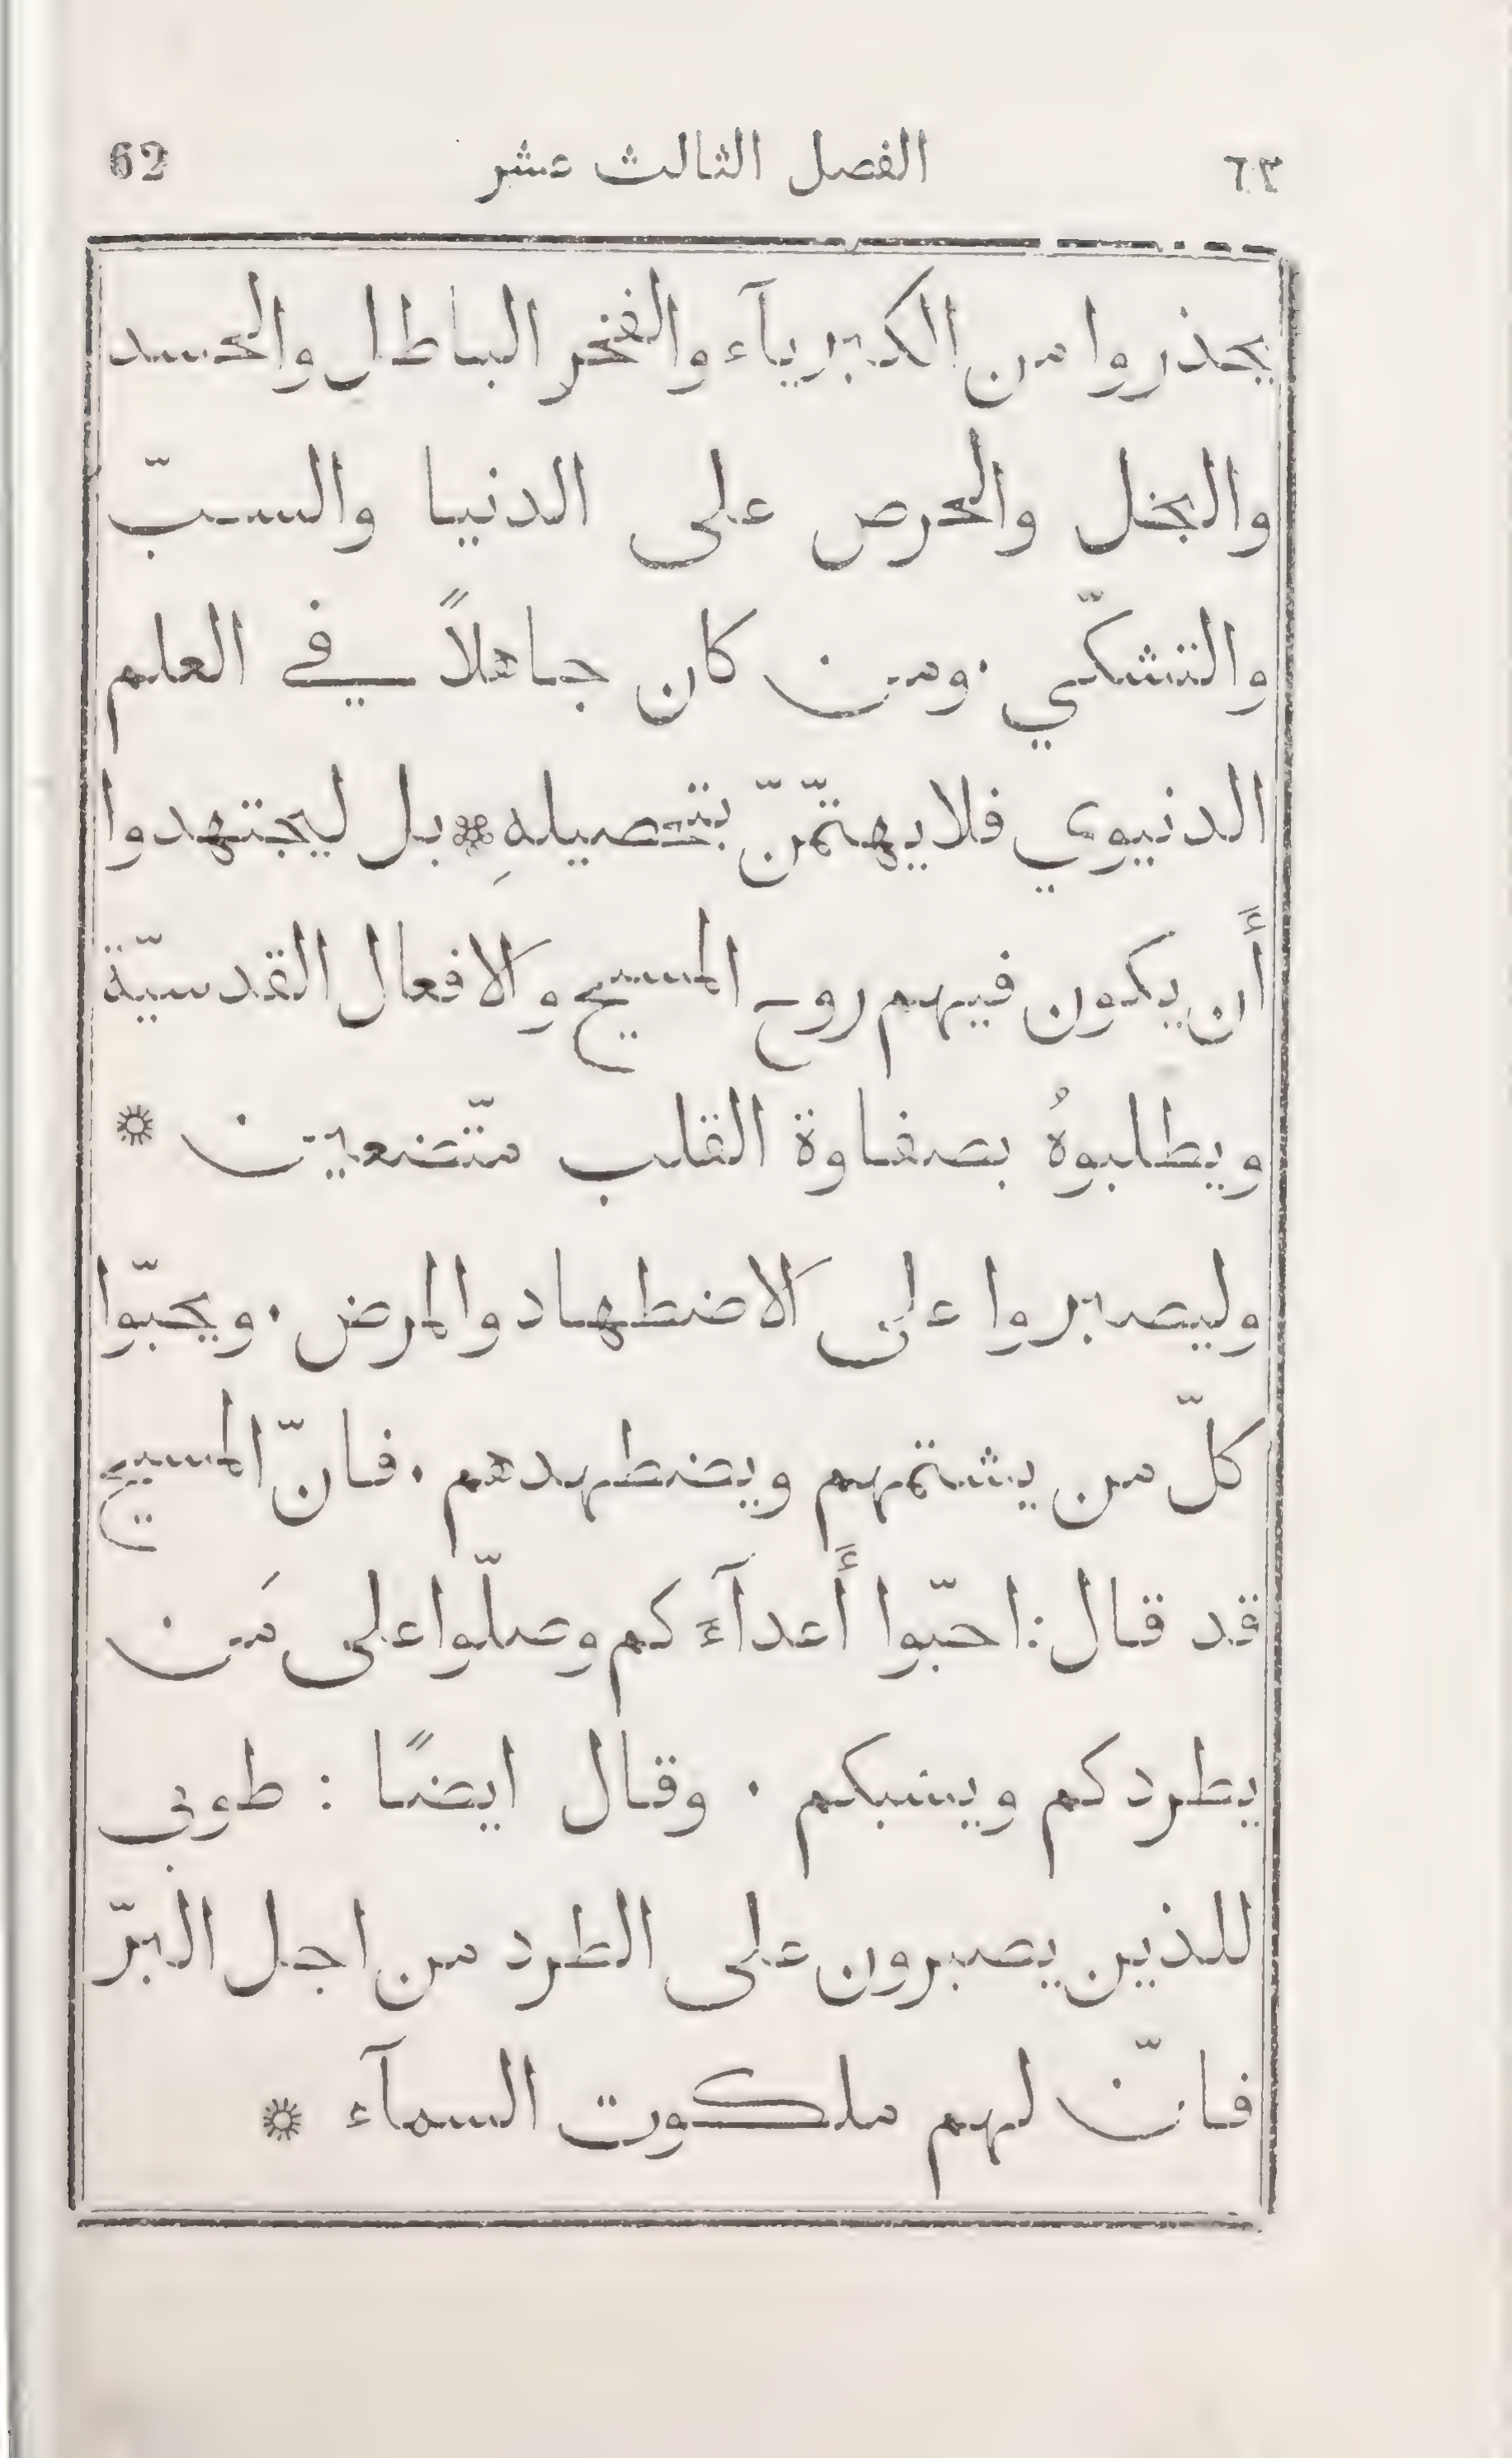 ٦٢ الفصل الثالث عشر 62
يحذروا من الكبرياۤء والفخر الباطل والحسد
والبخل والحرص على الدنيا والسبّ
والتشكّي ٠ ومن كان جاهلاً في العلم
الدنيوي فلا يهتمّنّ بتحصيلهِ ۞ بل ليجتهدوا
أَن يكون فيهم روح المسيح والافعال القدسيّة
ويطلبوهُ بصفاوة القلب متّضعين ۞
وليصبروا على الاضطهاد والمرض ٠ ويحبّوا
كلّ من يشتمهم ويضطهدهم ٠ فانّ المسيح
قد قال : احبّوا أَعدآءَكم وصلّوا على مَن
يطردكم ويسبكم ٠ وقال ايضًا : طوبى
للذين يصبرون على الطرد من اجل البرّ
فانّ لهم ملكوت السمآء ۞